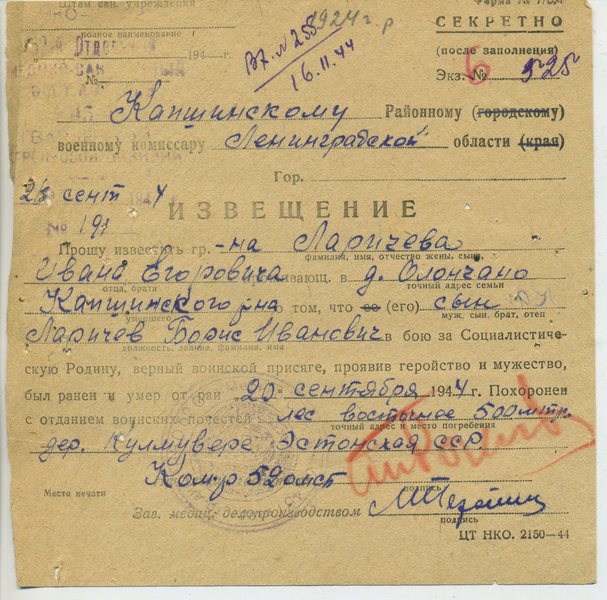 Штам сан. учреждения
Форма № 
1924 г. р
СЕКРЕТНО
полное наименование
(после заполнения)
194 г.
Вх. № 255
16.11.44
№
Экз. № 6 525
Капшинскому Районному (городскому)
военному комиссару Ленинградской области (края)
Гор.
сент 4
№ 191
ИЗВЕЩЕНИЕ
Прошу известить гр.-на Ларичева
фамилия, имя, отчество жены, сына,
Ивана Егоровича проживающ. в д. Олончано
отца, брата точный адрес семьи
Капшинского р-на о том, что ее (его) сын
умершего муж, сын, брат, отец
Ларичев Борис Иванович в бою за Социалистиче-
должность, звание, фамилия, имя
скую Родину, верный воинской присяге, проявив геройство и мужество,
был ранен и умер от ран 20 сентября 1944 г. Похоронен
с отданием воинских почестей лес восточнее 500 мтр.
точный адрес и место погребения
дер. Кулмувере Эстонская ССР
Ком-р 52 омст
Место печати
подпись
Зав. медиц. делопроизводством
подпись
ЦТ НКО. 2150—44